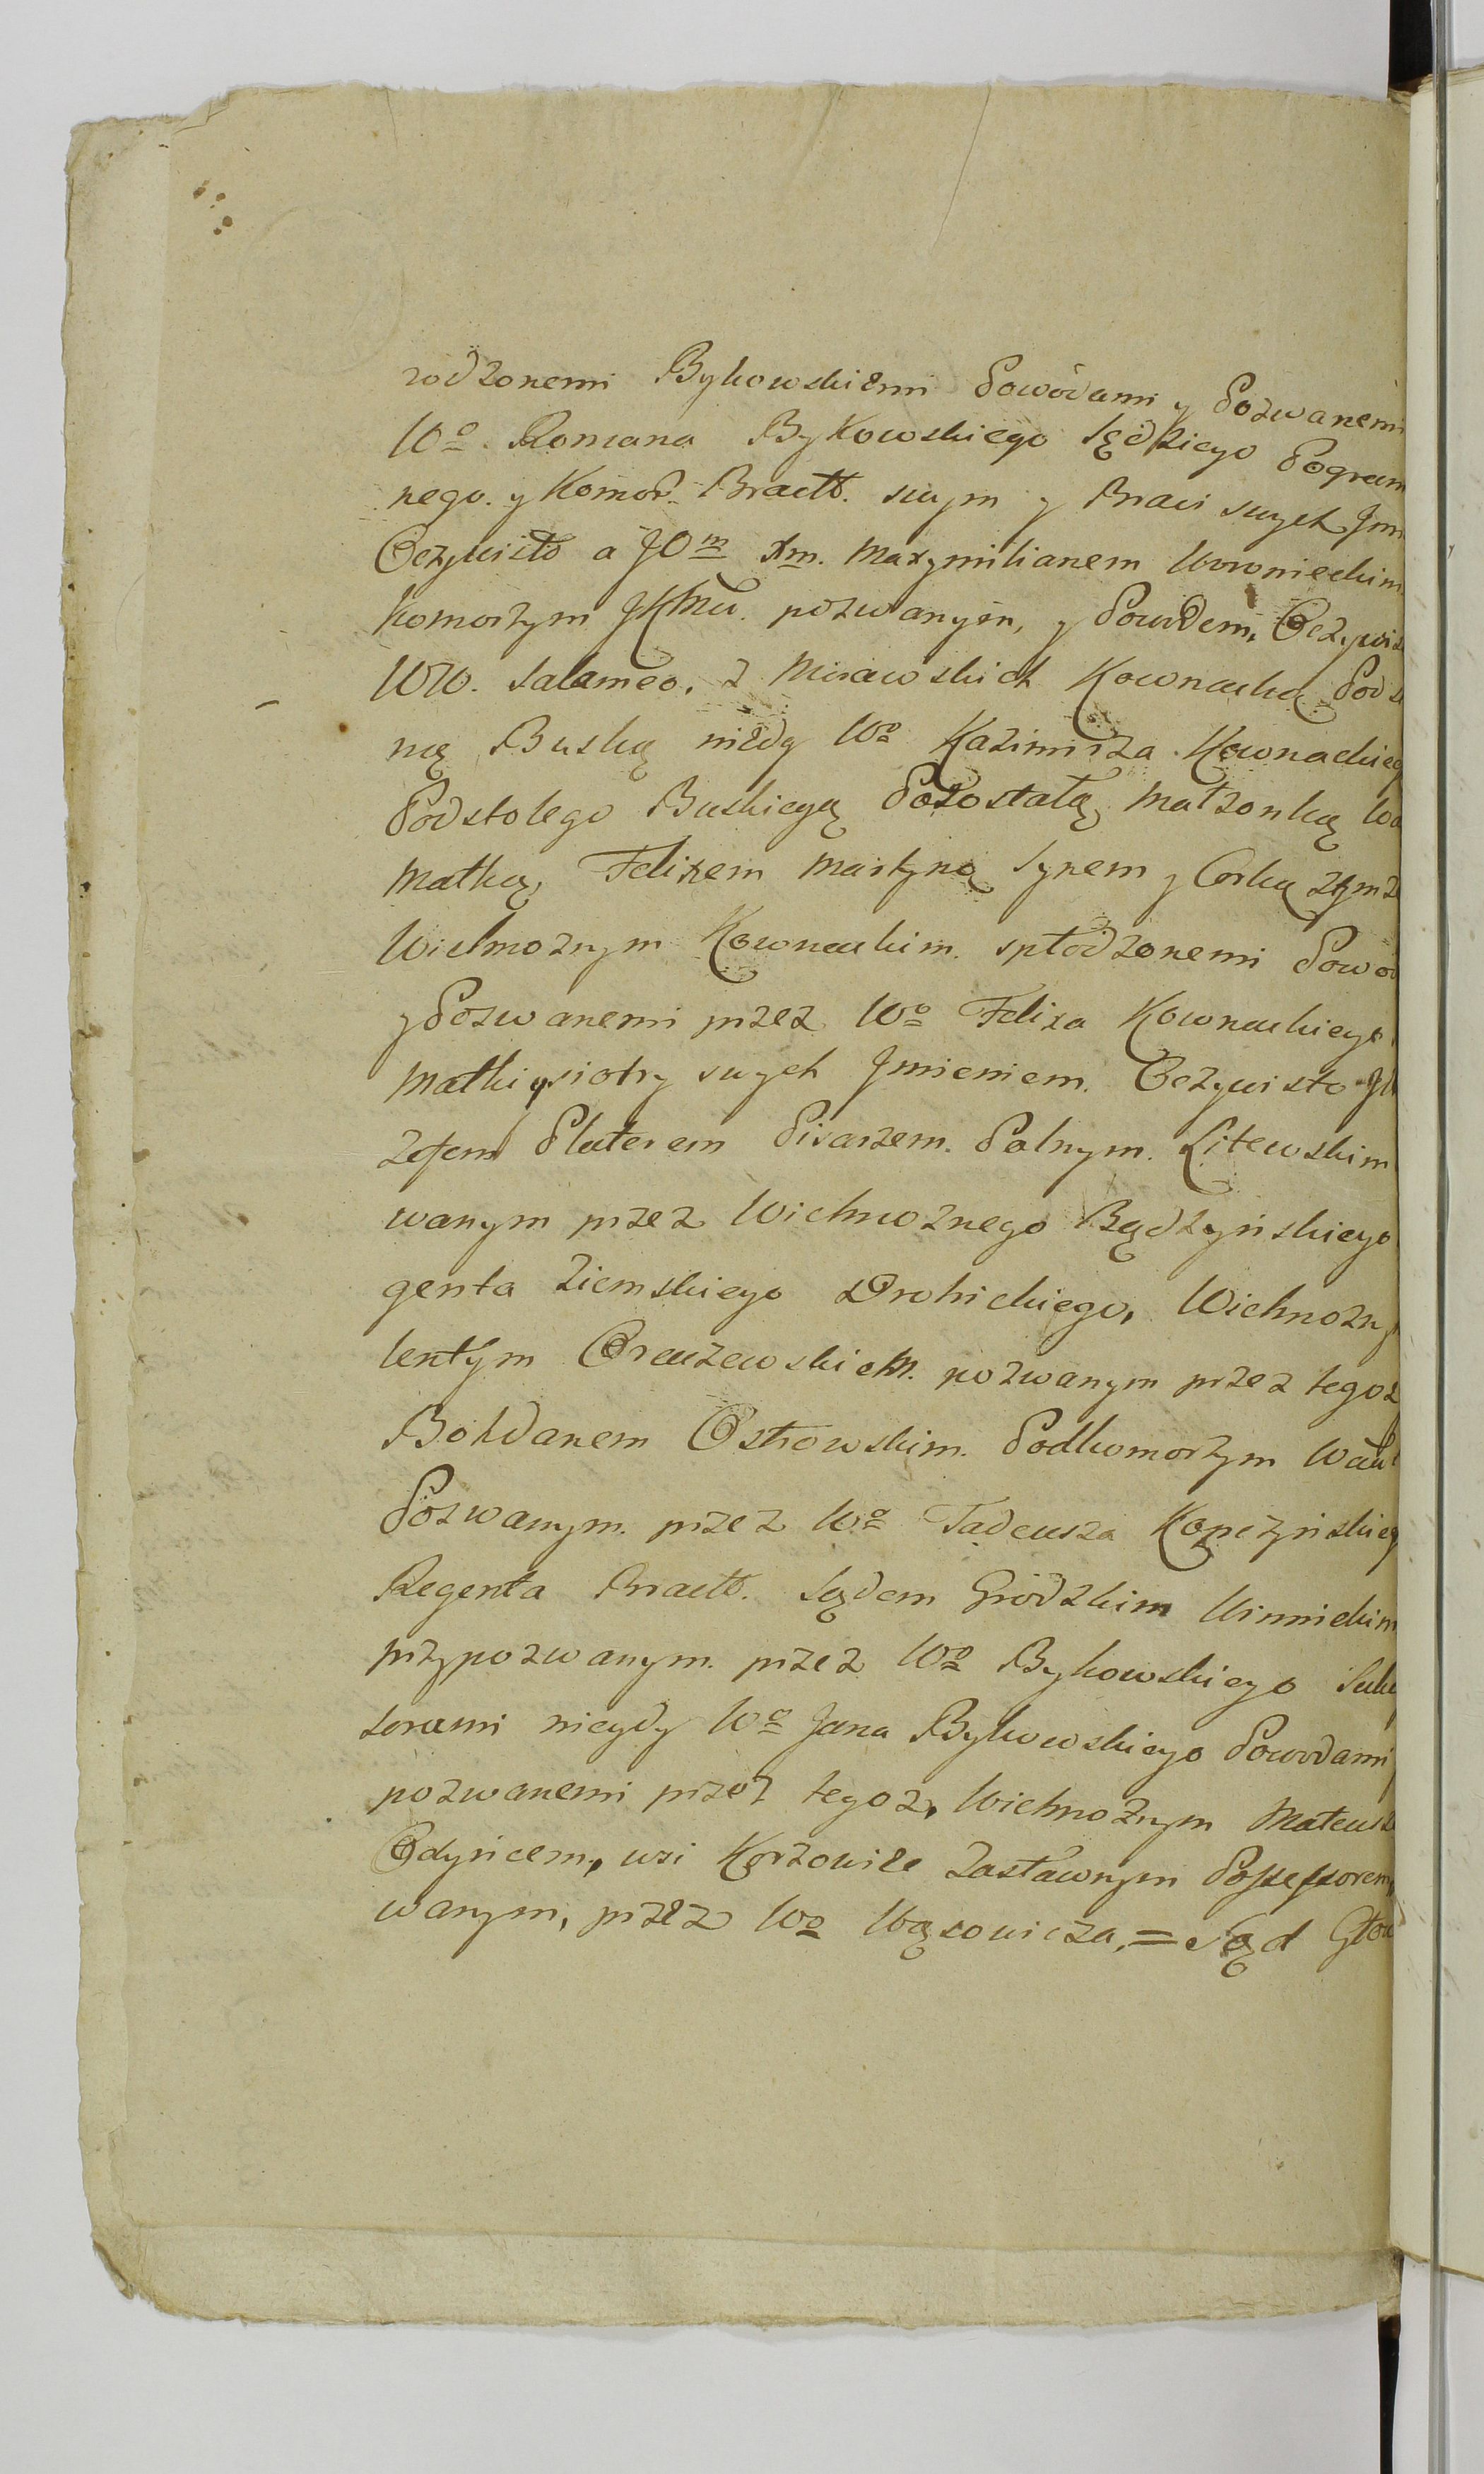 rodzonemi Bykowskiemi Powódami y Pozwanemi
Wo Romana Bykowskiego Sędziego Pogran
nego. y Komor. Bracł. swym y Braci swych Jm
Oczywisto a JOm Xm. Maxymilianem Woronieckim
Komorzym JKMci. pozwanym, y Powodem, Oczywis
WW. Salameo, z Mirawskich Kownacką Pods
ną Buską niedy Wo Kazimirza Kownackieg
Podstolego Buskiego Pozostałą, Małżonką Wo
Matką, Felixem Martyną Synem y Corką zTymże
Wielmożnym Kownackim. spłodzonemi Powod
y Pozwanemi przez Wo Felixa Kownackiego
Matki y siotry swych Jmieniem. Oczywisto JW
zefem Platerem Pisarzem. Polnym. Litewskim
wanym przez Wielmożnego Bądzyńskiego
genta Ziemskiego Drohickiego, Wielmożny
lentym Orauzewskiem. pozwanym przez tegoż
Bohdanem Ostrowskim. Podkomorzym
Pozwanym. przez Wo Tadeusza Kopczyńskieg
Regenta Bracł. Sądem Grodzkim Winnickim
przypozwanym. przez Wo Bykowskiego Sukc
sorami niegdy Wo Jana Bykowskiego Powodami
pozwanemi przez tegoż, Wielmożnym Mateusz
Odyńcem, wsi Korzowiec Zastawnym Possessorem,
wanym, przez Wo Wąsowicza, = Sąd Głow